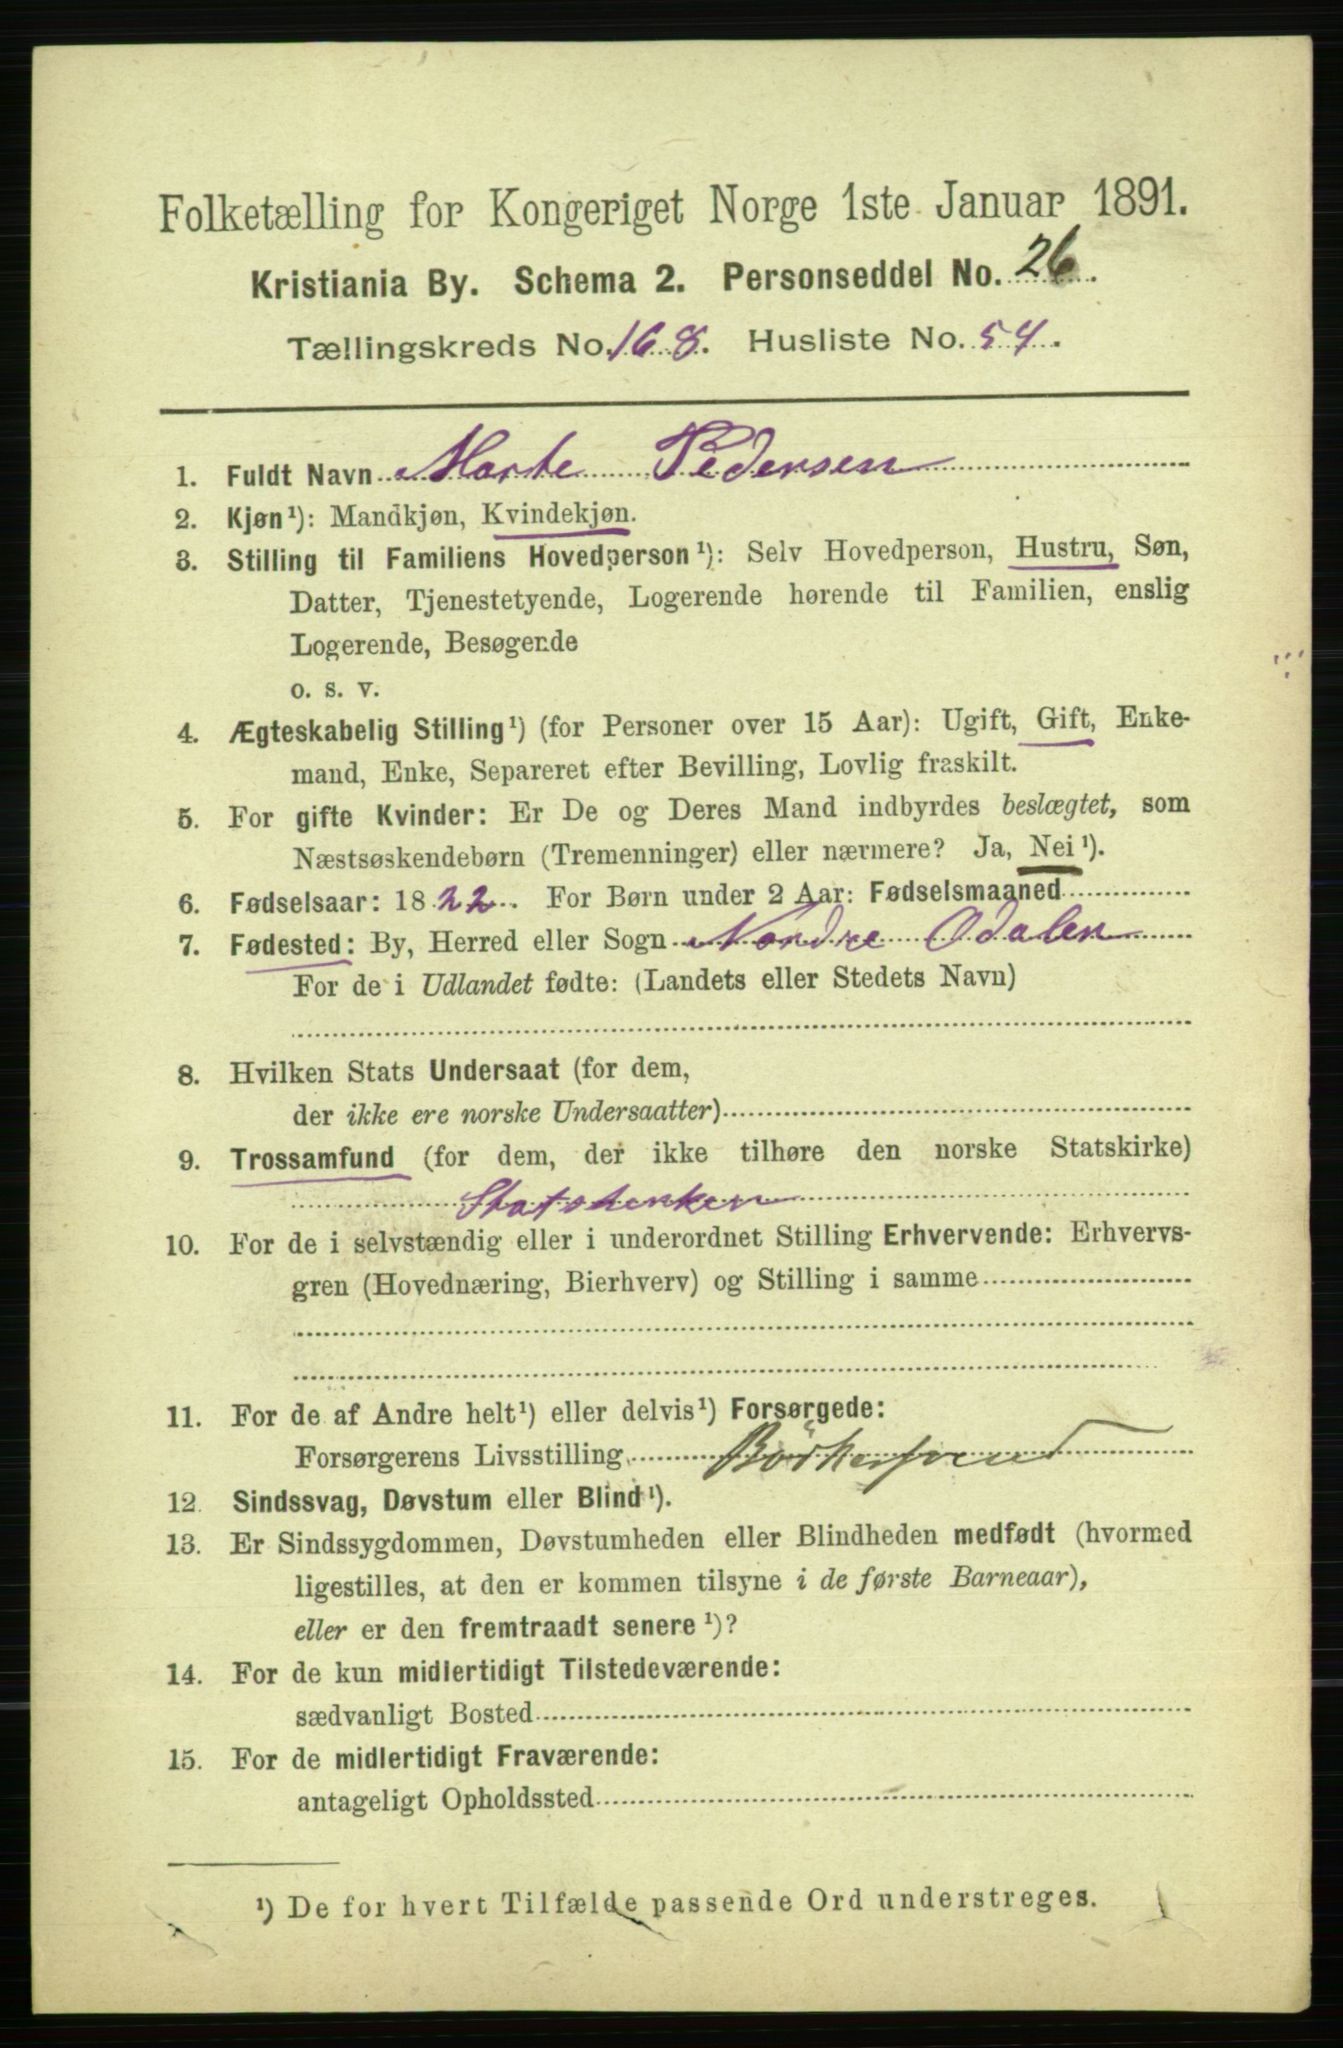 Folketælling for Kongeriget Norge 1ste Januar 1891.
Kristiania By. Schema 2. Personseddel No. 26.
Tællingskreds No. 168. Husliste No. 54.
1. Fuldt Navn Marte Pedersen
2. Kjøn¹): Mandkjøn, Kvindekjøn.
3. Stilling til Familiens Hovedperson¹): Selv Hovedperson, Hustru, Søn,
Datter, Tjenestetyende, Logerende hørende til Familien, enslig
Logerende, Besøgende
o. s. v.
4. Ægteskabelig Stilling¹) (for Personer over 15 Aar): Ugift, Gift, Enke-
mand, Enke, Separeret efter Bevilling, Lovlig fraskilt.
5. For gifte Kvinder: Er De og Deres Mand indbyrdes beslægtet, som
Næstsøskendebørn (Tremenninger) eller nærmere? Ja, Nei¹).
6. Fødselsaar: 1822. For Børn under 2 Aar: Fødselsmaaned
7. Fødested: By, Herred eller Sogn Nordre Odalen
For de i Udlandet fødte: (Landets eller Stedets Navn)
8. Hvilken Stats Undersaat (for dem,
der ikke ere norske Undersaatter)
9. Trossamfund (for dem, der ikke tilhøre den norske Statskirke)
10. For de i selvstændig eller i underordnet Stilling Erhvervende: Erhvervs-
gren (Hovednæring, Bierhverv) og Stilling i samme
11. For de af Andre helt¹) eller delvis¹) Forsørgede:
Forsørgerens Livsstilling
12. Sindssvag, Døvstum eller Blind¹).
13. Er Sindssygdommen, Døvstumheden eller Blindheden medfødt (hvormed
ligestilles, at den er kommen tilsyne i de første Barneaar),
eller er den fremtraadt senere¹)?
14. For de kun midlertidigt Tilstedeværende:
sædvanligt Bosted
15. For de midlertidigt Fraværende:
antageligt Opholdssted
¹) De for hvert Tilfælde passende Ord understreges.